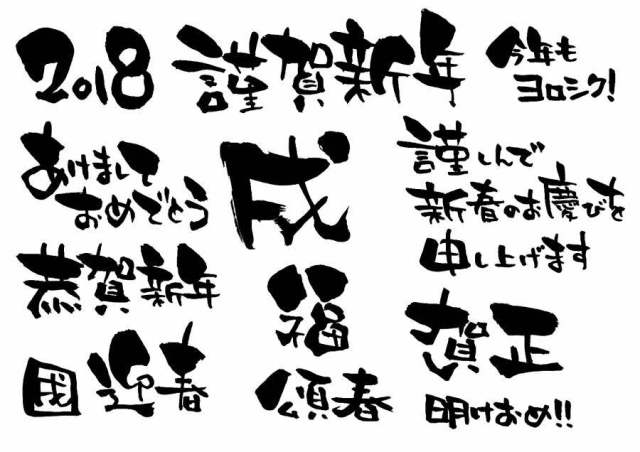 2018
謹賀新年
今年も
ヨロシク!
あけまして
おめでとう
戌
謹しんで
新春のお慶びを
申し上げます
恭賀新年
福
賀正
戌
迎春
頌春
明けおめ!!